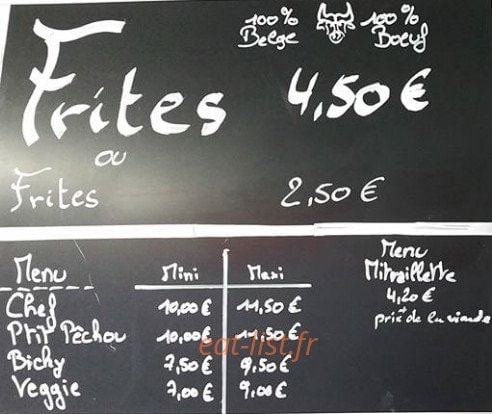 100% 100%
Belge Boeuf
Frites 4,50 €
ou
Frites 2,50 €
Menu Mini Maxi
Chef 10,00 € 11,50 €
Ptit Pêchou 10,00 € 11,50 €
Bichy 7,50 € 9,50 €
Veggie 7,00 € 9,00 €
Menu
Mitraillette
4,20 €
+ de la viande
eat-list.fr